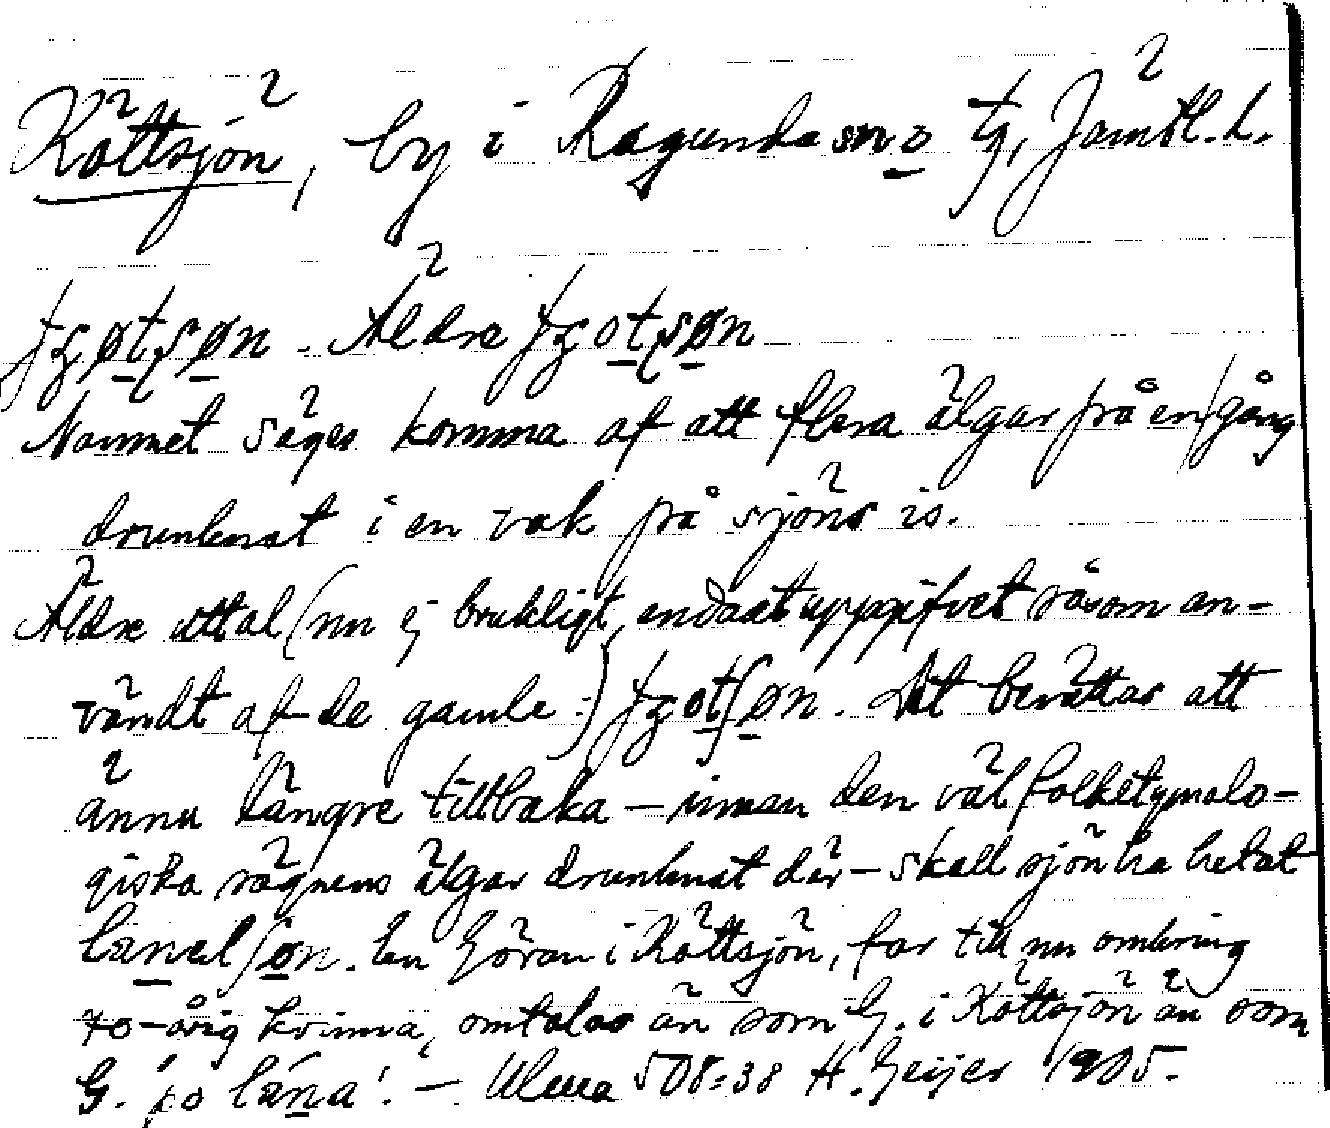 Köttsjön, by i Ragunda sn o tg, Jämtl. l.
Äldre
Namnet säges komma af att flera älgar på en gång
drunknat i en vak på sjöns is.
Äldre uttal (nu ej brukligt, endast uppgifvet såsom an-
vändt af de gamle:) Det berättas att
ännu längre tillbaka – innan den väl folketymolo-
giska sägnens älgar drunknat där – skall sjön ha hetat
En Göran i Köttsjön, far till nu omkring
70-årig kvinna, omtalas än som G. i Köttsjön än som
G. på låna! – Ulma 508:38 H. Geijer 1905.